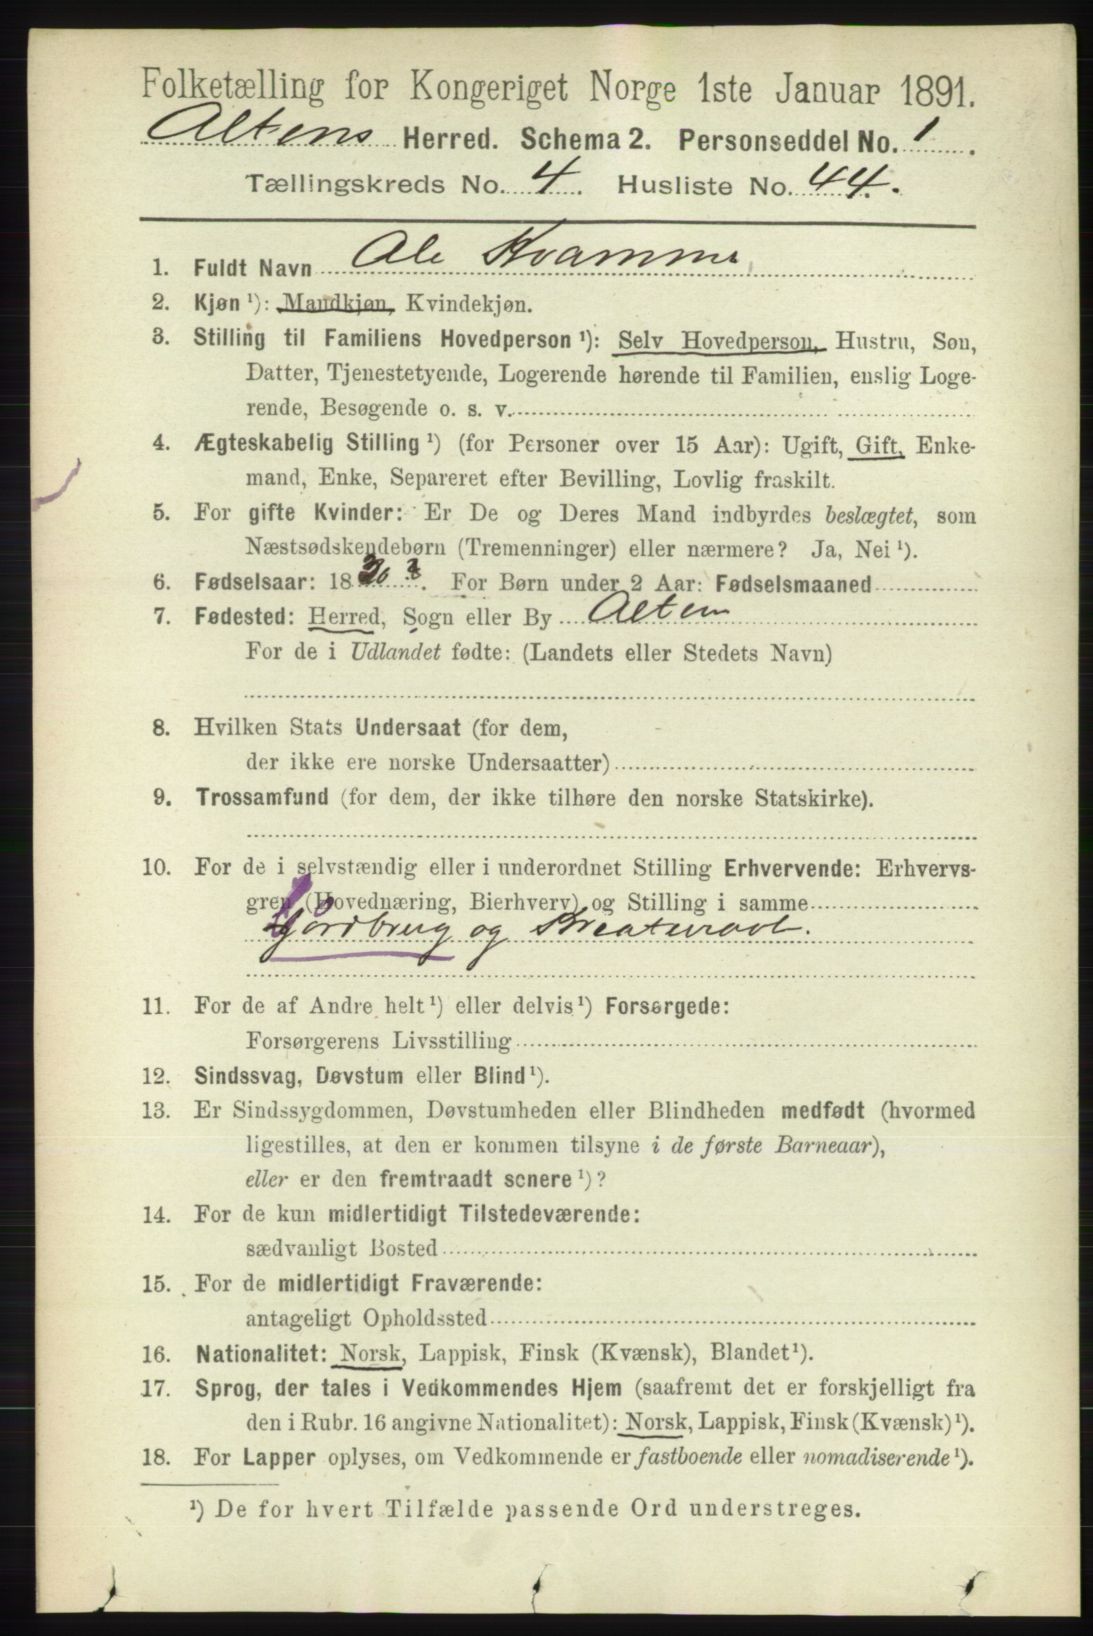 Folketælling for Kongeriget Norge 1ste Januar 1891.
Altens Herred. Schema 2. Personseddel No. 1.
Tællingskreds No. 4. Husliste No. 44.
1. Fuldt Navn Ole Kvamme
2. Kjøn ¹): Mandkjøn, Kvindekjøn.
3. Stilling til Familiens Hovedperson ¹): Selv Hovedperson, Hustru, Søn,
Datter, Tjenestetyende, Logerende hørende til Familien, enslig Loge-
rende, Besøgende o. s. v.
4. Ægteskabelig Stilling ¹) (for Personer over 15 Aar): Ugift, Gift, Enke-
mand, Enke, Separeret efter Bevilling, Lovlig fraskilt.
5. For gifte Kvinder: Er De og Deres Mand indbyrdes beslægtet, som
Næstsødskendebørn (Tremenninger) eller nærmere? Ja, Nei ¹).
6. Fødselsaar: 18 . For Børn under 2 Aar: Fødselsmaaned
7. Fødested: Herred, Sogn eller By Alten
For de i Udlandet fødte: (Landets eller Stedets Navn)
8. Hvilken Stats Undersaat (for dem,
der ikke ere norske Undersaatter)
9. Trossamfund (for dem, der ikke tilhøre den norske Statskirke).
10. For de i selvstændig eller i underordnet Stilling Erhvervende: Erhvervs-
gren (Hovednæring, Bierhverv) og Stilling i samme
Jordbrug og Kreaturavl.
11. For de af Andre helt ¹) eller delvis ¹) Forsørgede:
Forsørgerens Livsstilling
12. Sindssvag, Døvstum eller Blind ¹).
13. Er Sindssygdommen, Døvstumheden eller Blindheden medfødt (hvormed
ligestilles, at den er kommen tilsyne i de første Barneaar),
eller er den fremtraadt senere ¹)?
14. For de kun midlertidigt Tilstedeværende:
sædvanligt Bosted
15. For de midlertidigt Fraværende:
antageligt Opholdssted
16. Nationalitet: Norsk, Lappisk, Finsk (Kvænsk), Blandet ¹).
17. Sprog, der tales i Vedkommendes Hjem (saafremt det er forskjelligt fra
den i Rubr. 16 angivne Nationalitet): Norsk, Lappisk, Finsk (Kvænsk) ¹).
18. For Lapper oplyses, om Vedkommende er fastboende eller nomadiserende ¹).
¹) De for hvert Tilfælde passende Ord understreges.